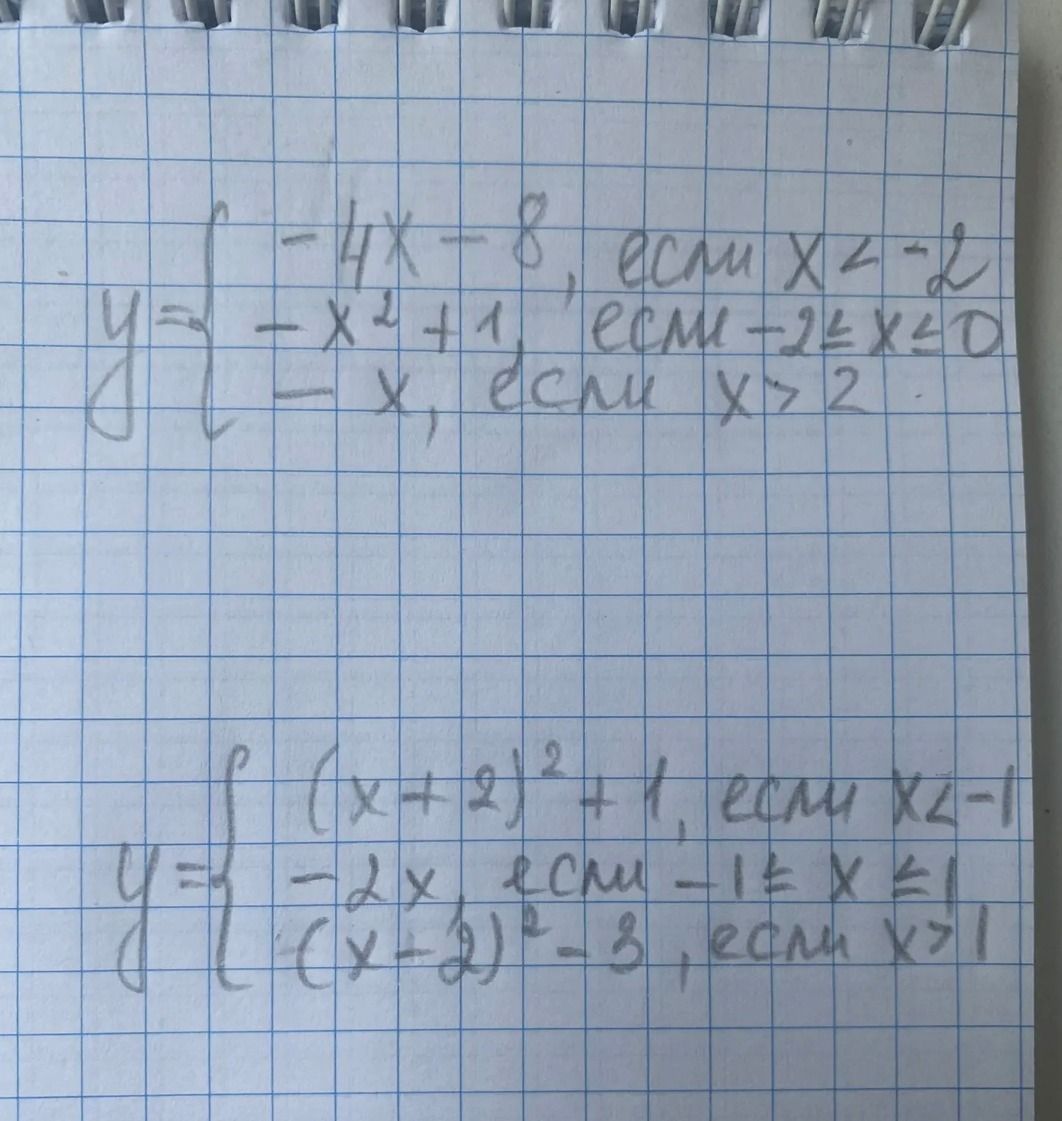 y = { -4x - 8, если x < -2
-x² + 1, если -2 ≤ x ≤ 0
- x, если x > 2
y = { (x + 2)² + 1, если x < -1
-2x, если -1 ≤ x ≤ 1
-(x - 2)² - 3, если x > 1